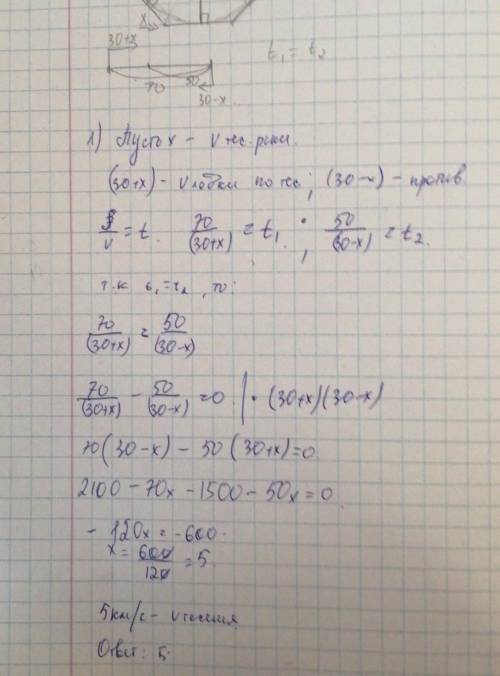 x
30+x
t₁ = t₂
70 50
30-x
1) Пусть x - v тес. реки.
(30+x) - v лодки по тес; (30-x) - против.
S/v = t. 70/(30+x) = t₁ ; 50/(30-x) = t₂.
т.к t₁=t₂, то:
70/(30+x) = 50/(30-x)
70/(30+x) - 50/(30-x) = 0 | · (30+x)(30-x)
70(30-x) - 50(30+x)=0
2100 - 70x - 1500 - 50x = 0
- 120x = -600.
x = 600/120 = 5.
5 км/с - v течения
Ответ: 5